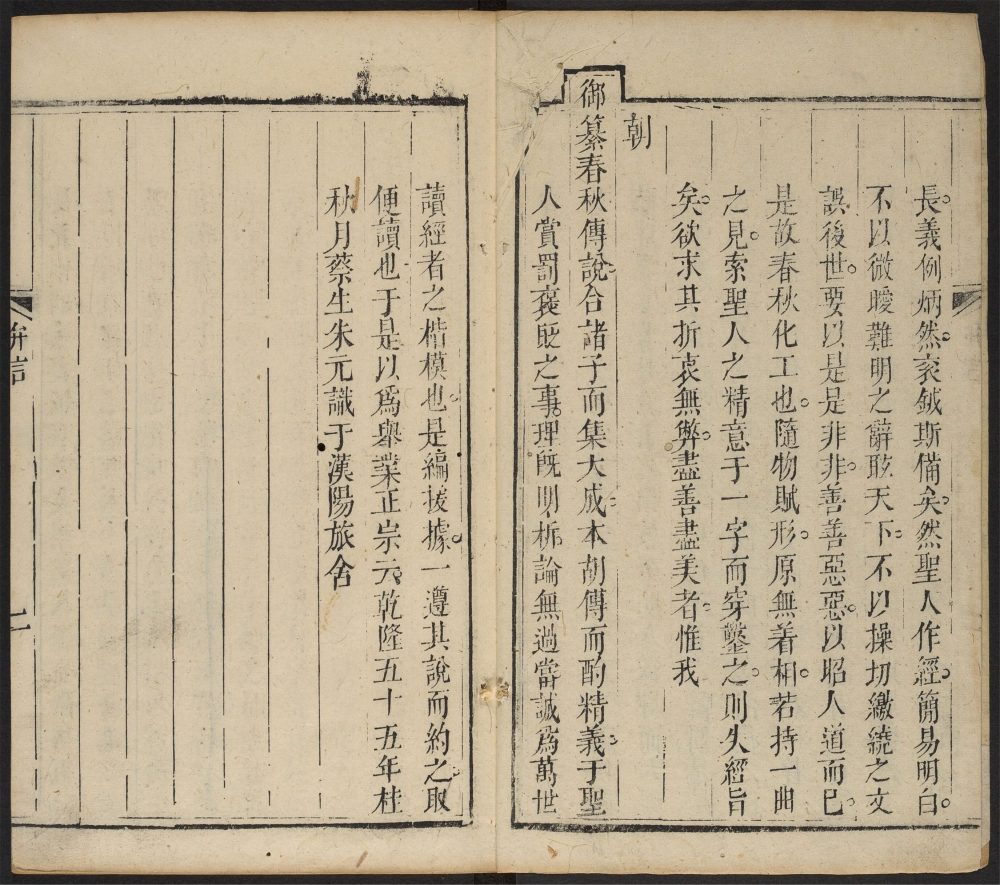 長義例炳然袞鉞斯備矣然聖人作經簡易明白
不以微曖難明之辭敎天下不以操切繳繞之文
誤後世要以是是非非善善惡惡以昭人道而已
是故春秋化工也隨物賦形原無着相若持一曲
之見索聖人之精意于一字而穿鑿之則失經旨
矣欲求其折衷無弊盡善盡美者惟我
朝
御纂春秋傳說合諸子而集大成本胡傳而酌精義于聖
人賞罰褒貶之事理旣明析論無過當誠爲萬世
讀經者之楷模也是編援據一遵其說而約之取
便讀也于是以爲舉業正宗云乾隆五十五年桂
秋月蔡生朱元識于漢陽旅舍
弁言